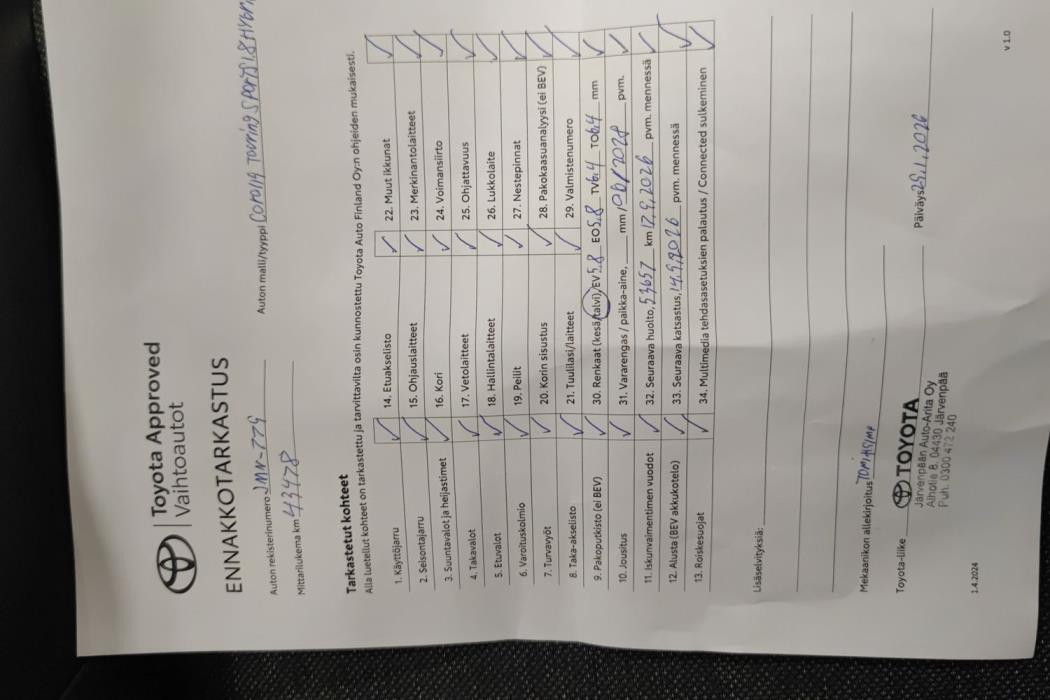 Toyota Approved
Vaihtoautot
ENNAKKOTARKASTUS
Auton rekisterinumero JMN-779 Auton malli/tyyppi Corolla Touring Sports 1.8 Hybrid
Mittarilukema km 43478
Tarkastetut kohteet
Alla luetellut kohteet on tarkastettu ja tarvittavilta osin kunnostettu Toyota Auto Finland Oy:n ohjeiden mukaisesti.
1. Käyttöjarru ✓ 14. Etuakselisto ✓ 22. Muut ikkunat ✓
2. Seisontajarru ✓ 15. Ohjauslaitteet ✓ 23. Merkinantolaitteet ✓
3. Suuntavalot ja heijastimet ✓ 16. Kori ✓ 24. Voimansiirto ✓
4. Takavalot ✓ 17. Vetolaitteet ✓ 25. Ohjattavuus ✓
5. Etuvalot ✓ 18. Hallintalaitteet ✓ 26. Lukkolaite ✓
6. Varoituskolmio ✓ 19. Peilit ✓ 27. Nestepinnat ✓
7. Turvavyöt ✓ 20. Korin sisustus ✓ 28. Pakokaasuanalyysi (ei BEV) ✓
8. Taka-akselisto ✓ 21. Tuulilasi/laitteet ✓ 29. Valmistenumero ✓
9. Pakoputkisto (ei BEV) ✓ 30. Renkaat (kesä/talvi), EV 5.8 EO 5.8 TV 6.4 TO 6.4 mm ✓
10. Jousitus ✓ 31. Vararengas / paikka-aine, mm / 06/2028 pvm. ✓
11. Iskunvaimentimen vuodot ✓ 32. Seuraava huolto, 53657 km 17.9.2026 pvm. mennessä ✓
12. Alusta (BEV akkukotelo) ✓ 33. Seuraava katsastus, 14.9.2026 pvm. mennessä ✓
13. Roiskesuojat ✓ 34. Multimedia tehdasasetuksien palautus / Connected sulkeminen ✓
Lisäselvityksiä:
Mekaanikon allekirjoitus
Toyota-liike TOYOTA Päiväys 29.1.2026
Järvenpään Auto-Arita Oy
Alhotie 8, 04430 Järvenpää
Puh. 0300 472 240
1.4.2024 v 1.0